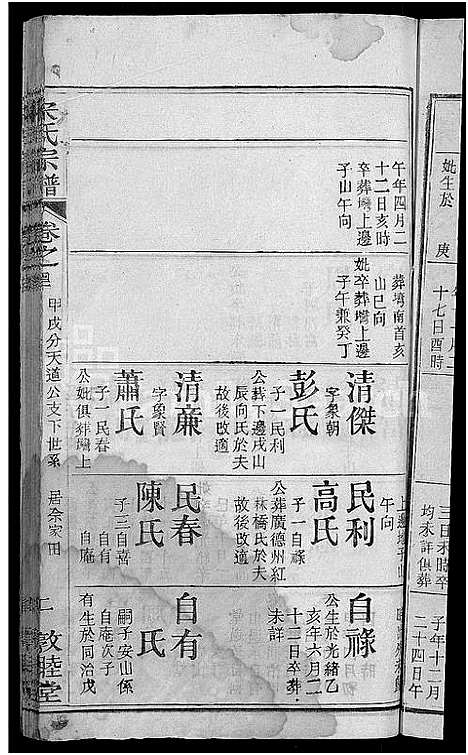 妣生於
庚
十七日酉時
三日未時卒
均未詳俱葬
子年十二月
二十四日午
午年四月二
十二日亥時
卒葬墈上邊
子山午向
葬塆南首亥
山巳向
妣卒葬墈上邊
子午兼癸丁
清傑
字象朝
彭氏
子一民利
公葬下邊戌山
辰向氏於夫
故後改適
清蓭
字象賢
蕭氏
子一民春
公妣俱葬墈上
午向
民利
高氏
子一自祿
公葬廣德州紅
林橋氏於夫
故後改適
民春
陳氏
子三自喜
自有
自庵
自祿
公生於光緒乙
亥年六月二
十二日卒葬
未詳
自有
氏
嗣子安山係
自庵次子
有生於同治戊
宋氏宗譜
卷之
甲戌分天道公支下世系
居余家田
敦睦堂